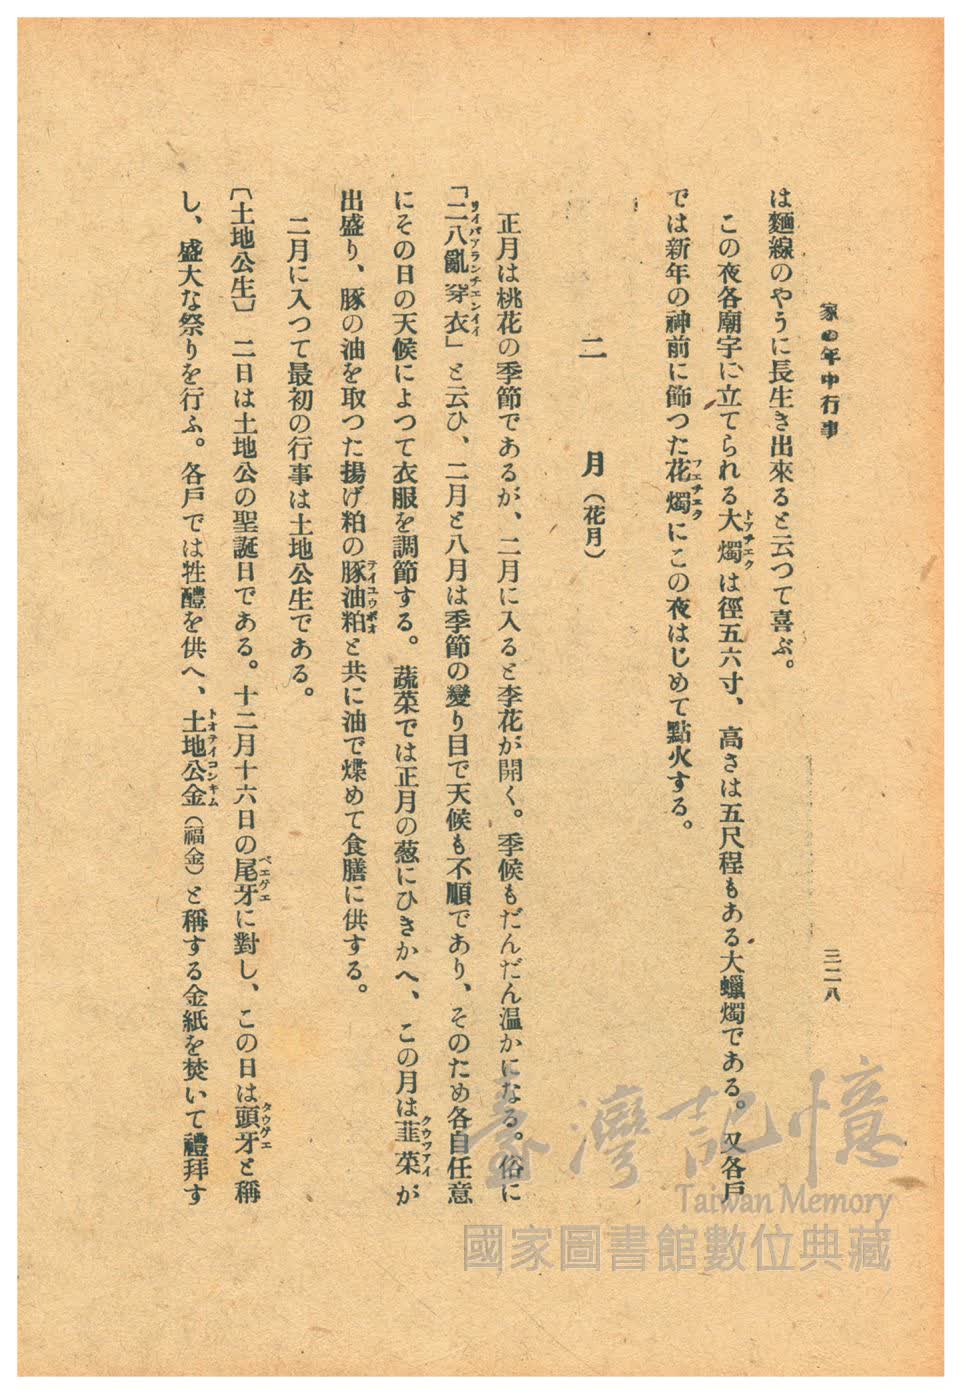 家の年中行事
三二八
は麵線のやうに長生き出來ると云つて喜ぶ。
この夜各廟宇に立てられる大燭は徑五六寸、高さは五尺程もある大蠟燭である。又各戸
では新年の神前に飾つた花燭にこの夜はじめて點火する。
二月（花月）
正月は桃花の季節であるが、二月に入ると李花が開く。季候もだんだん溫かになる。俗に
「二八亂穿衣」と云ひ、二月と八月は季節の變り目で天候も不順であり、そのため各自任意
にその日の天候によつて衣服を調節する。蔬菜では正月の葱にひきかへ、この月は韮菜が
出盛り、豚の油を取つた揚げ粕の豚油粕と共に油で煠めて食膳に供する。
二月に入つて最初の行事は土地公生である。
〔土地公生〕　二日は土地公の聖誕日である。十二月十六日の尾牙に對し、この日は頭牙と稱
し、盛大な祭りを行ふ。各戸では牲醴を供へ、土地公金（福金）と稱する金紙を焚いて禮拜す
臺灣記憶
Taiwan Memory
國家圖書館數位典藏